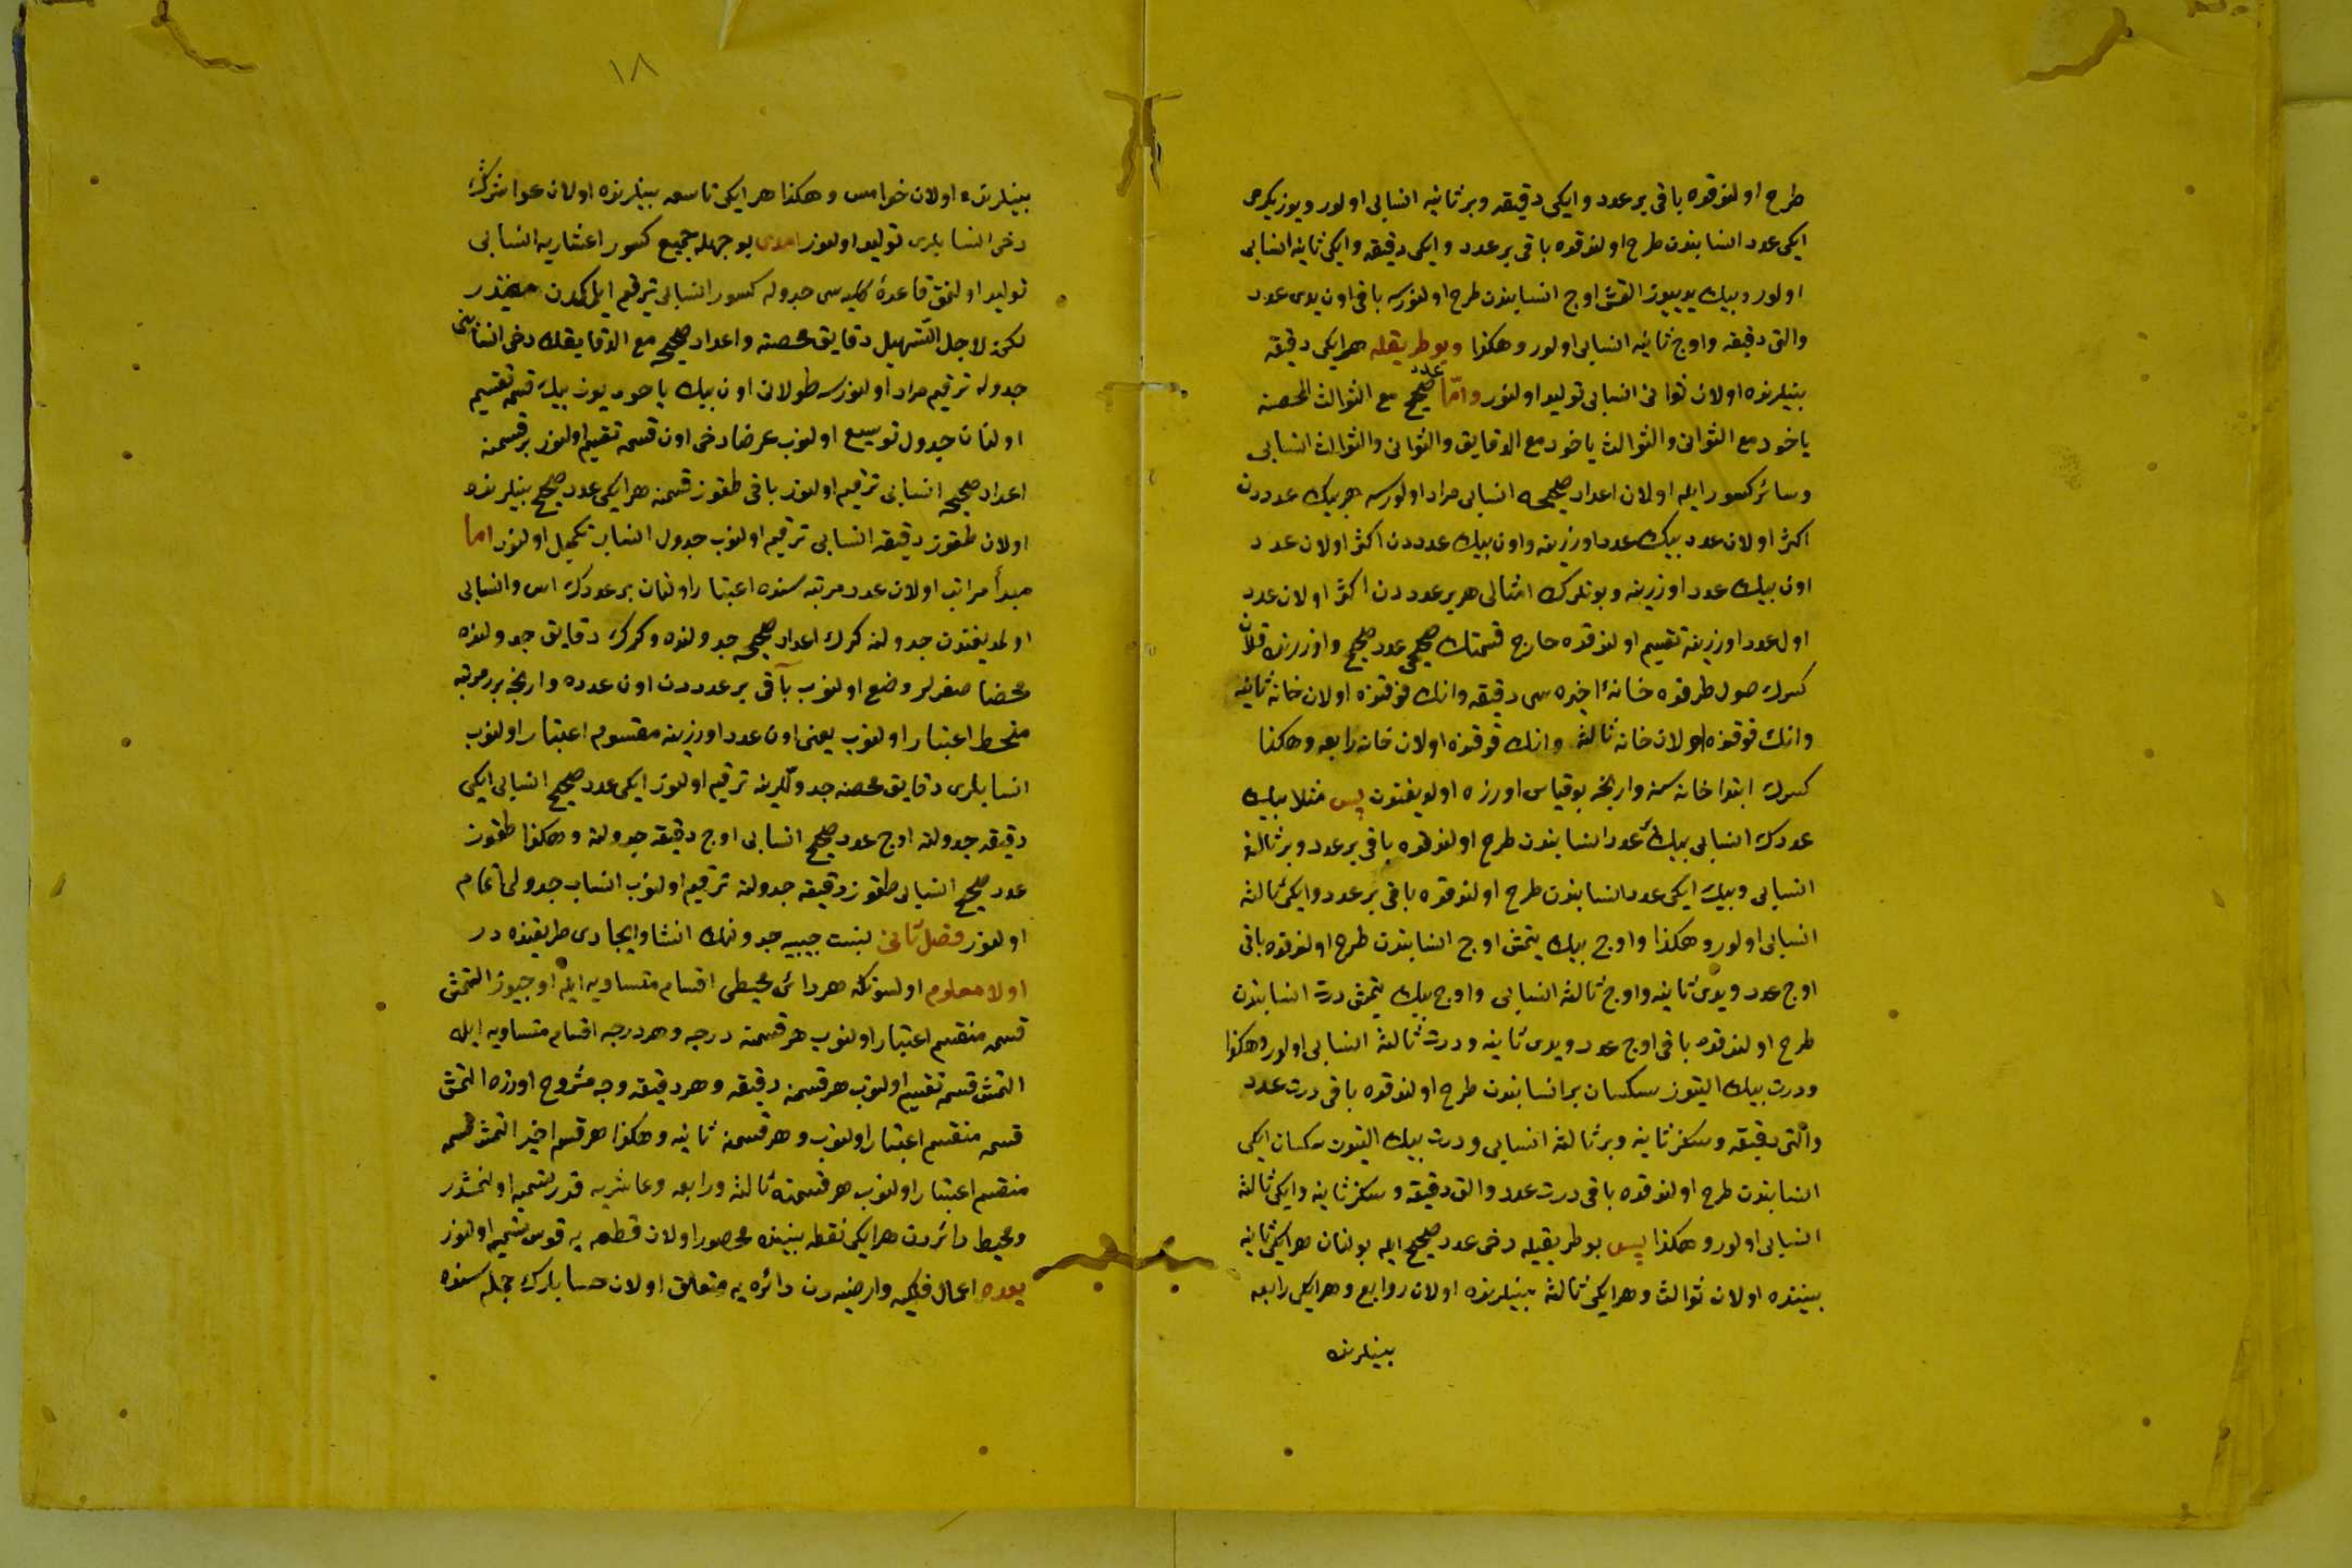 طرح اولندقده باقی بر عدد و ایکی دقیقه و بر ثانیه انسابی اولور و یوز یکرمی
ایکی عدد انسابندن طرح اولندقده باقی بر عدد و ایکی دقیقه و ایکی ثانیه انسابی
اولور و بیك یدییوز التمش اوج انسابندن طرح اولنورسه باقی اون یدی عدد
والتی دقیقه واوج ثانیه انسابی اولور وهكذا وبو طریقله هر ایکی دقیقه
بینلرنده اولان ثوانی انسابی تولید اولنور واما عدد صحیح مع الثوالث المحضه
یاخود مع الثوانی والثوالث یاخود مع الدقایق والثوانی والثوالث انسابی
وسائر كسور ایله اولان اعداد صحیحه انسابی مراد اولورسه هر بیك عددن
اكثر اولان عدد بیك عدد اوزرینه واون بیك عددن اكثر اولان عدد
اون بیك عدد اوزرینه وبونلرك امثالی هر بر عددن اكثر اولان عدد
اول عدد اوزرینه تقسیم اولندقده خارج قسمتك صحیحی عدد صحیح واوزرنده
كسرك صول طرفنده خانهٔ اخیره سی دقیقه وانك فوقنده اولان خانه ثانیه
وانك فوقنده اولان خانه ثالثه وانك فوقنده اولان خانه رابعه وهكذا
كسرك ابتدا خانه سنه وارنجه بو قیاس اوزره اولدیغندن پس مثلا بیك
عددك انسابی بیك عدد انسابندن طرح اولندقده باقی بر عدد وبر ثالثه
انسابی وبیك ایکی عدد انسابندن طرح اولندقده باقی بر عدد وایکی ثالثه
انسابی اولور وهكذا واوج بیك یتمش اوج انسابندن طرح اولندقده باقی
اوج عدد ویدی ثانیه واوج ثالثه انسابی واوج بیك یتمش درت انسابندن
طرح اولندقده باقی اوج عدد ویدی ثانیه ودرت ثالثه انسابی اولور وهكذا
ودرت بیك التیوز سكسان بر انسابندن طرح اولندقده باقی درت عدد
والتی دقیقه وسكز ثانیه وبر ثالثه انسابی ودرت بیك التیوز سكسان ایکی
انسابندن طرح اولندقده باقی درت عدد والتی دقیقه وسكز ثانیه وایکی ثالثه
انسابی اولور وهكذا پس بو طریقیله دخی عدد صحیح ایله بولنان هر ایکی ثانیه
بیننده اولان ثوالث وهر ایکی ثالثه بینلرنده اولان روابع وهر ایکی رابعه
بینلرنده
١٨
بینلرنده اولان خوامس وهكذا هر ایکی تاسعه بینلرنده اولان عواشرك
دخی انسابلری تولید اولنور امدی بو جهله جمیع كسور اعشاریه انسابی
تولید اولنمق قاعدهٔ كلیه سی جدوله كسور انسابی ترقیم ایلمكدن
لكن لاجل التسهیل دقایق محضه واعداد صحیحه مع الدقایقك دخی انسابنی
جدوله ترقیم مراد اولنورسه طولانی اون بیك یاخود یوز بیك قسمه تقسیم
اولنان جدول توسیع اولنوب عرضا دخی اون قسمه تقسیم اولنور بر قسمنه
اعداد صحیحه انسابی ترقیم اولنور باقی طقوز قسمنه هر ایکی عدد صحیح بینلرنده
اولان طقوز دقیقه انسابی ترقیم اولنوب جدول انساب تكمیل اولنور اما
مبدأ مراتب اولان عدد مرتبه سنده اعتبار اولنان بر عددك اس وانسابی
اولمدیغندن جدولنه كرك اعداد صحیحه جدولنده وكرك دقایق جدولنده
محضا صفرلر وضع اولنوب باقی بر عددن اون عدده وارنجه بر مرتبه
منحط اعتبار اولنوب یعنی اون عدد اوزرینه مقسوم اعتبار اولنوب
انسابلری دقایق محضه جدوللرینه ترقیم اولنور ایکی عدد صحیح انسابی ایکی
دقیقه جدولنه اوج عدد صحیح انسابی اوج دقیقه جدولنه وهكذا طقوز
عدد صحیح انسابی طقوز دقیقه جدولنه ترقیم اولنوب انساب جدولی تمام
اولنور فصل ثانی نسبت جیبیه جدولنك انشا وایجادی طریقنده در
اولا معلوم اولسونكه هر دائره محیطی اقسام متساویه ایله اوچیوز التمش
قسمه منقسم اعتبار اولنوب هر قسمنه درجه وهر درجه اقسام متساویه ایله
التمش قسمه تقسیم اولنوب هر قسمنه دقیقه وهر دقیقه وجه مشروح اوزره التمش
قسمه منقسم اعتبار اولنوب وهر قسمنه ثانیه وهكذا هر قسم اخیر التمش قسمه
منقسم اعتبار اولنوب هر قسمته ثالثه ورابعه وعاشریه قدر تسمیه اولنمشدر
ومحیط دائره دن هر ایکی نقطه بیننده محصور اولان قطعه یه قوس تسمیه اولنور
بعده اعمال فلكیه وارضیه دن دائره یه متعلق اولان حسابلرك جمله سنده